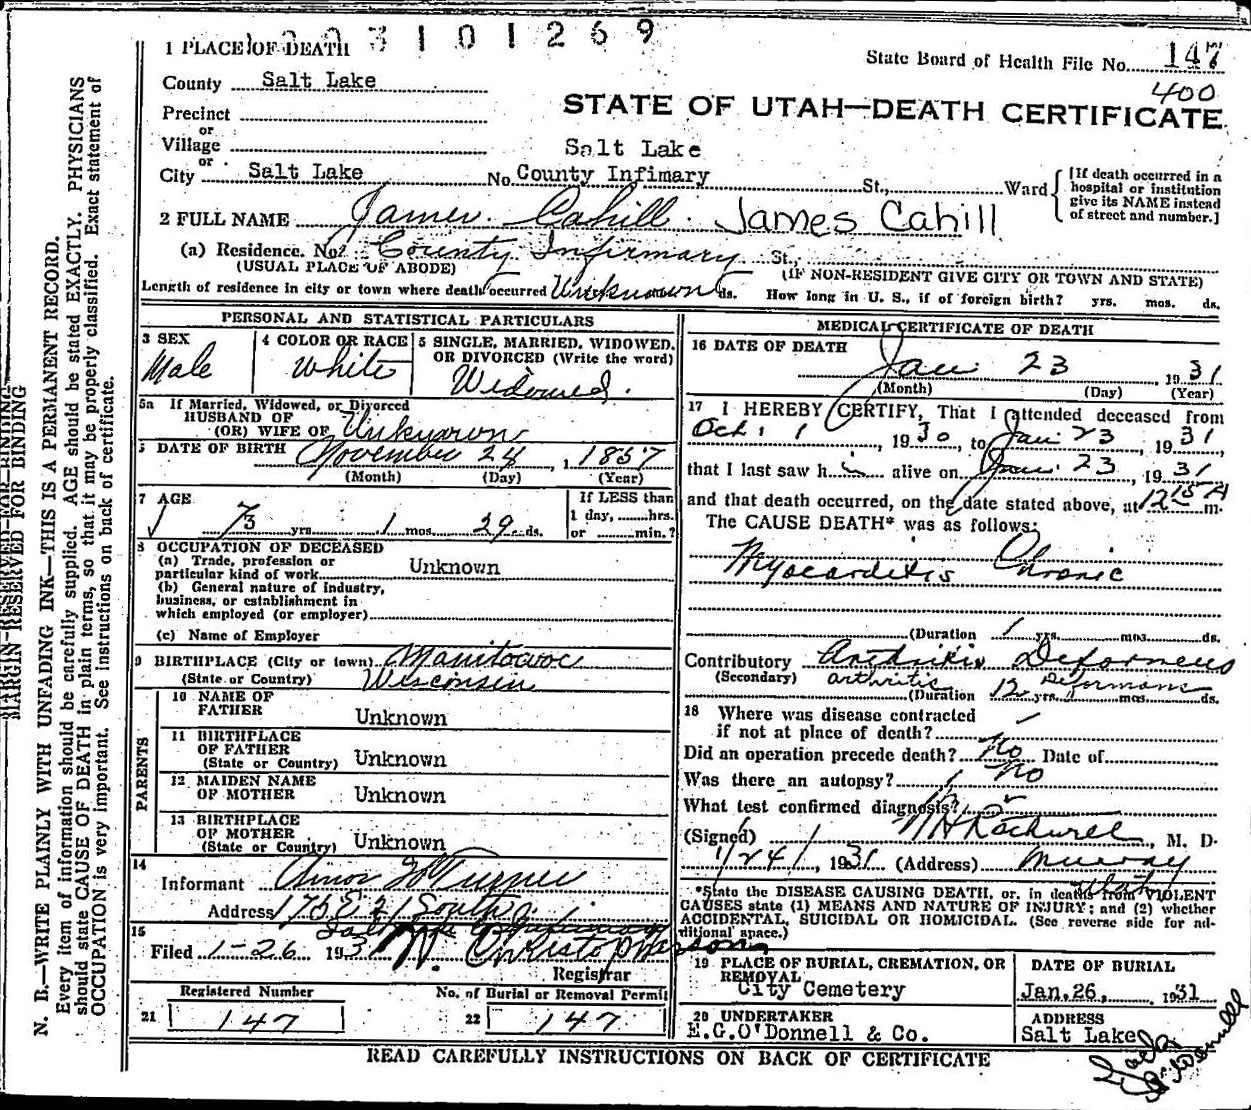 3 1 0 1 2 6 9
1 PLACE OF DEATH
State Board of Health File No. 147
400
County Salt Lake
STATE OF UTAH—DEATH CERTIFICATE
Precinct
or
Village
Salt Lake
or
City Salt Lake No. County Infimary St., Ward
[If death occurred in a hospital or institution give its NAME instead of street and number.]
2 FULL NAME James Cahill James Cahill
(a) Residence. No. County Infirmary St.,
(USUAL PLACE OF ABODE) (IF NON-RESIDENT GIVE CITY OR TOWN AND STATE)
Length of residence in city or town where death occurred Unknown ds. How long in U. S., if of foreign birth? yrs. mos. ds.
PERSONAL AND STATISTICAL PARTICULARS
3 SEX
Male
4 COLOR OR RACE
White
5 SINGLE, MARRIED, WIDOWED, OR DIVORCED (Write the word)
Widowed.
5a If Married, Widowed, or Divorced
HUSBAND OF
(OR) WIFE OF Unknown
6 DATE OF BIRTH November 24, 1857
(Month) (Day) (Year)
7 AGE
73 yrs. 1 mos. 29 ds.
If LESS than
1 day, hrs.
or min.?
8 OCCUPATION OF DECEASED
(a) Trade, profession or
particular kind of work Unknown
(b) General nature of industry,
business, or establishment in
which employed (or employer)
(c) Name of Employer
9 BIRTHPLACE (City or town) Manitowoc
(State or Country) Wisconsin
PARENTS
10 NAME OF
FATHER Unknown
11 BIRTHPLACE
OF FATHER
(State or Country) Unknown
12 MAIDEN NAME
OF MOTHER Unknown
13 BIRTHPLACE
OF MOTHER
(State or Country) Unknown
14
Informant Turner
Address 175 E 21 South
15
Filed 1-26 1931 Christopherson
Registrar
Registered Number
21 147
No. of Burial or Removal Permit
22 147
MEDICAL CERTIFICATE OF DEATH
16 DATE OF DEATH
Jan 23, 1931
(Month) (Day) (Year)
17 I HEREBY CERTIFY, That I attended deceased from
Oct. 1, 1930, to Jan 23, 1931
that I last saw h i alive on Jan. 23, 1931
and that death occurred, on the date stated above, at 12 15 A m.
The CAUSE DEATH* was as follows:
Myocarditis Chronic
(Duration 1 yrs. mos. ds.
Contributory Arthritis Deformens
(Secondary) arthritis Deformans
(Duration 12 yrs. mos. ds.
18 Where was disease contracted
if not at place of death?
Did an operation precede death? No Date of
Was there an autopsy? No
What test confirmed diagnosis?
(Signed) Rockwell, M. D.
1/24/, 1931 (Address) Murray
Utah
*State the DISEASE CAUSING DEATH, or, in deaths from VIOLENT
CAUSES state (1) MEANS AND NATURE OF INJURY; and (2) whether
ACCIDENTAL, SUICIDAL OR HOMICIDAL. (See reverse side for additional space.)
19 PLACE OF BURIAL, CREMATION, OR
REMOVAL
City Cemetery
DATE OF BURIAL
Jan. 26, 1931
20 UNDERTAKER
E.G.O'Donnell & Co.
ADDRESS
Salt Lake
O'Donnell
READ CAREFULLY INSTRUCTIONS ON BACK OF CERTIFICATE
MARGIN RESERVED FOR BINDING
N. B.—WRITE PLAINLY WITH UNFADING INK—THIS IS A PERMANENT RECORD.
Every item of information should be carefully supplied. AGE should be stated EXACTLY. PHYSICIANS
should state CAUSE OF DEATH in plain terms, so that it may be properly classified. Exact statement of
OCCUPATION is very important. See instructions on back of certificate.